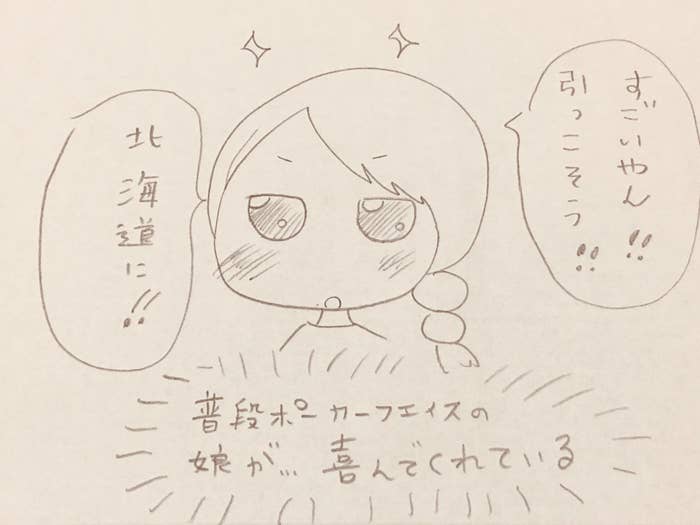 すごいやん!!
引っこそう!!
北海道に!!
普段ポーカーフェイスの
娘が… 喜んでくれている